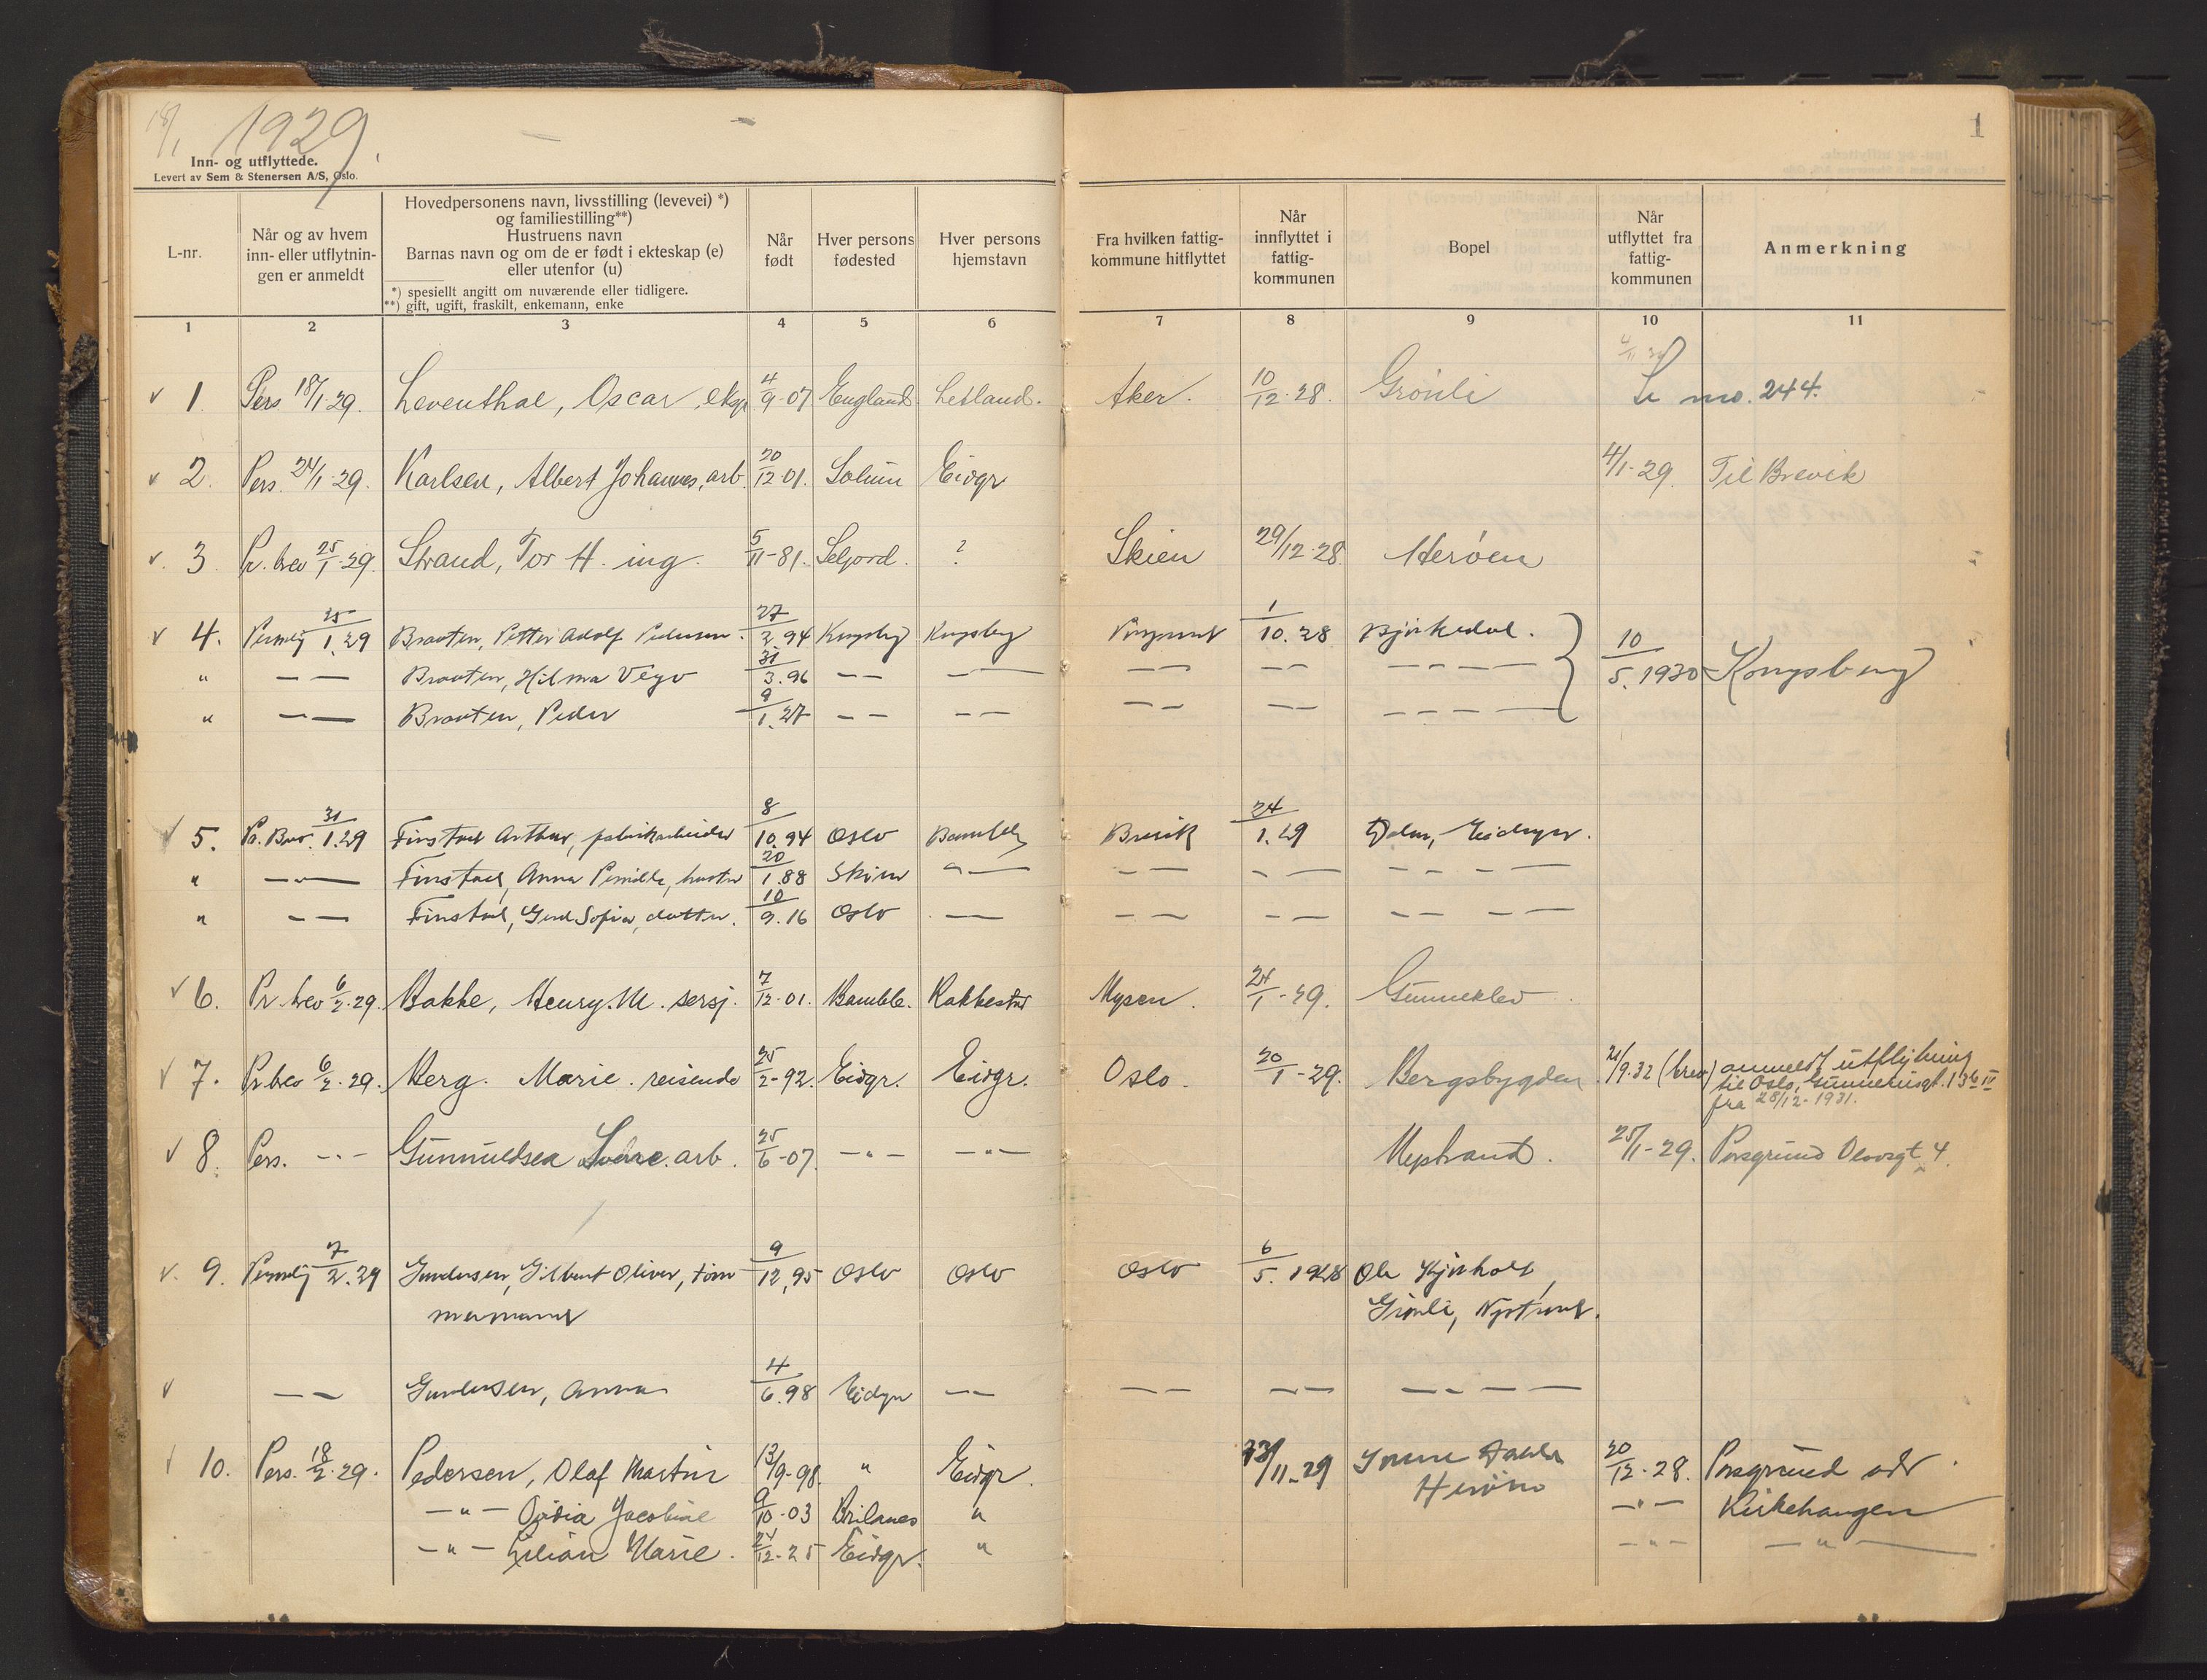 18/1 1929.
1
Inn- og utflyttede.
Levert av Sem & Stenersen A/S, Oslo.
L-nr.
Når og av hvem inn- eller utflytnin- gen er anmeldt
Hovedpersonens navn, livsstilling (levevei) *)
og familiestilling**)
Hustruens navn
Barnas navn og om de er født i ekteskap (e)
eller utenfor (u)
*) spesiellt angitt om nuværende eller tidligere.
**) gift, ugift, fraskilt, enkemann, enke
Når født
Hver persons fødested
Hver persons hjemstavn
Fra hvilken fattig- kommune hitflyttet
Når innflyttet i fattig- kommunen
Bopel
Når utflyttet fra fattig- kommunen
Anmerkning
1 2 3 4 5 6 7 8 9 10 11
1. Pers 18/1-29. Leventhal, Oscar, 4/9-07 England Letland. Aker. 10/12-28. Grönli Se no. 244.
2. Pers. 24/1-29. Karlsen, Albert Johannes, arb. 20/12-01. Solum Eidgr 4/1-29. Til Brevik
3. Pr. brev 25/1-29. Strand, Tor H. ing. 5/11-81. Seljord. ? Skien 29/12-28. Herøen
4. 25/1.29 Braaten, Petter Adolf Pedersen. 27/2.94 Kongsberg Kongsberg Porsgrund 1/10.28 Bjørkedal. 10/5.1930 Kongsberg
" — — Braaten, Hilma 31/3.96 — — — — — — — — — — — —
" — — Braaten, Peder 9/1.27 — — — — — — — — — — — —
5. Pr. Brev. 31/1.29 Finstad Arthur, fabrikarbeider 8/10.94 Oslo Bamble Brevik 24/1.29 Eidanger.
" — — Finstad, Anna Pernille, hustru 20/1.88 Skien — — — — — — — — — —
" — — Finstad, Gerd Sofie, datter. 10/9.16 Oslo — — — — — — — — — —
6. Pr. brev 6/2-29. Bakke, Henry M. sersj. 7/12-01. Bamble. Rakkestad Mysen. 24/1-29. Gunneklev
7. Pr. brev 6/2-29. Berg. Marie. reisende 25/2-92. Eidgr. Eidgr. Oslo. 20/1-29. Bergsbygden 21/9.32 (brev) anmeldt utflytning
til Oslo,
fra 28/12-1931.
8. Pers. -"- Gunnuldsen Sverre. arb. 25/6-07. -"- -"- Nystrand. 25/1-29. Porsgrund Olavsgt. 4.
9. Personlig 7/2.29 Gundersen, Gilbert Oliver, tøm- 9/12.95 Oslo Oslo Oslo 6/5.1928 Ole Kjørholt,
mermand Grönli, Nystrand.
— — Gundersen, Anna 4/6.98 Eidgr — — — — — — — — — —
10. Pers. 18/2-29. Pedersen, Olaf Martin 13/9-98. " Eidgr. 23/11-29 20/12-28. Porsgrund adr.
Herøen
-"- Jacobine 9/10-03 " -"- Kirkehaugen
-"- Lilian Marie. 24/12-25 Eidgr. " -"- -"-